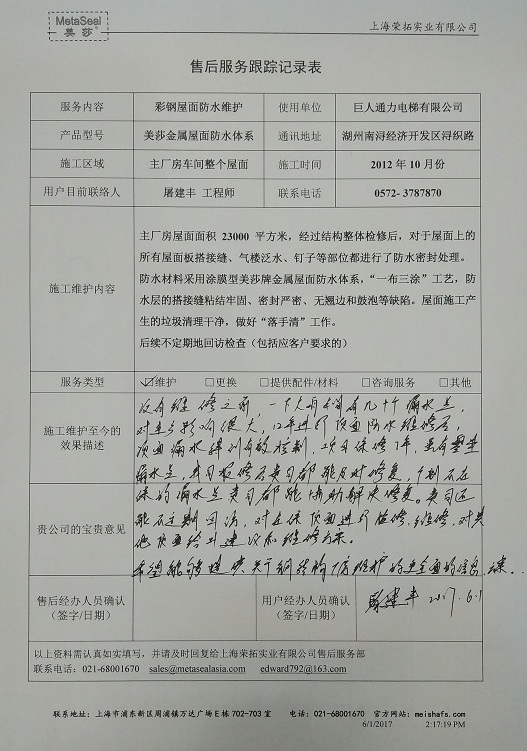 MetaSeal
美莎
上海荣拓实业有限公司
售后服务跟踪记录表
服务内容 彩钢屋面防水维护 使用单位 巨人通力电梯有限公司
产品型号 美莎金属屋面防水体系 通讯地址 湖州南浔经济开发区浔织路
施工区域 主厂房车间整个屋面 施工时间 2012 年 10 月份
用户目前联络人 屠建丰 工程师 联系电话 0572- 3787870
施工维护内容
主厂房屋面面积 23000 平方米，经过结构整体检修后，对于屋面上的
所有屋面板搭接缝、气楼泛水、钉子等部位都进行了防水密封处理。
防水材料采用涂膜型美莎牌金属屋面防水体系，“一布三涂”工艺，防
水层的搭接缝粘结牢固、密封严密、无翘边和鼓泡等缺陷。屋面施工产
生的垃圾清理干净，做好“落手清”工作。
后续不定期地回访检查（包括应客户要求的）
服务类型 ☑维护 □更换 □提供配件/材料 □咨询服务 □其他
施工维护至今的
效果描述
没有维修之前，一下大雨就有几十个漏水点，
对生产影响很大，12年进行顶面防水维修后，
顶面漏水得到有效控制，
漏水点，贵司报修后贵司都能及时修复，
贵公司的宝贵意见
保的漏水点贵司都能协助解决修复。贵司还
能不定期回访，对在保顶面进行检修、维修，对其
他顶面给出建议和维修方案。
希望能够提供关于钢结构厂房维护的更全面的信息
售后经办人员确认
（签字/日期）
用户经办人员确认
（签字/日期）
屠建丰 2017.6.1
以上资料需认真如实填写，并请及时回复给上海荣拓实业有限公司售后服务部
联系电话：021-68001670 sales@metasealasia.com edward792@163.com
联系地址：上海市浦东新区周浦镇万达广场 E 栋 702-703 室 电话：021-68001670 官方网站：meishafs.com
6/1/2017 2:17:19 PM